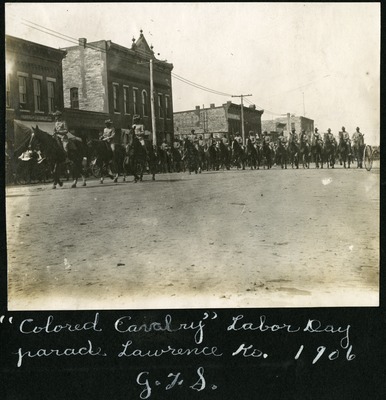 "Colored Cavalry" Labor Day
parad. Lawrence Ks. 1906
G.F.S.